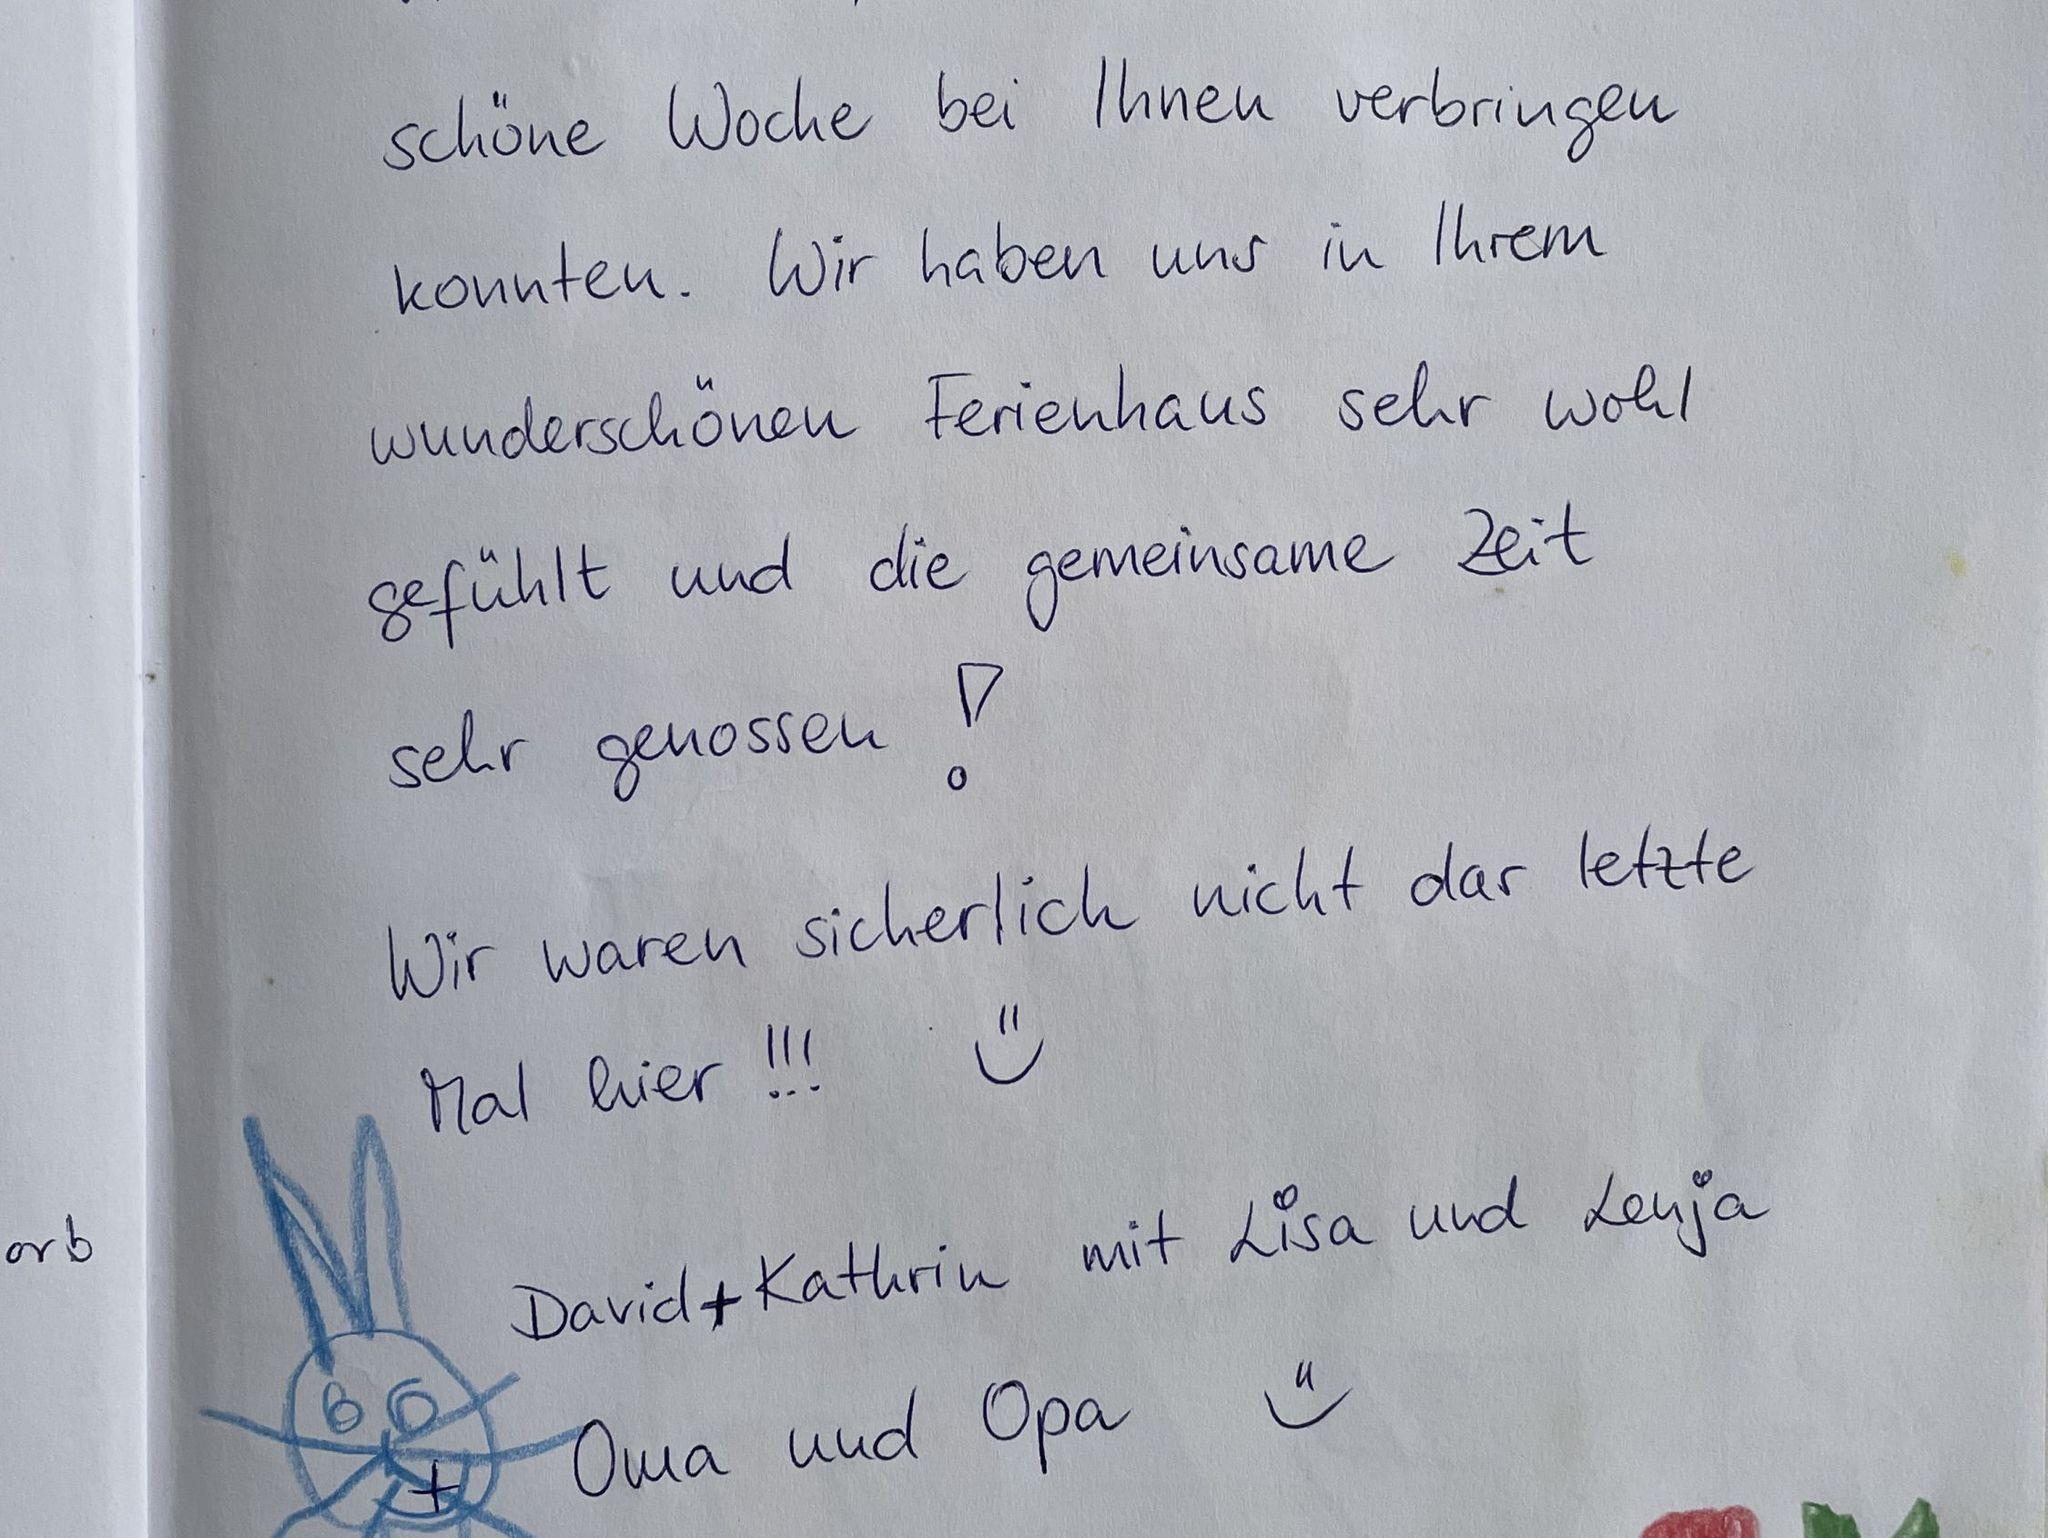 schöne Woche bei Ihnen verbringen
konnten. Wir haben uns in Ihrem
wunderschönen Ferienhaus sehr wohl
gefühlt und die gemeinsame Zeit
sehr genossen!
Wir waren sicherlich nicht das letzte
Mal hier!!!
David + Kathrin mit Lisa und Lenja
+ Oma und Opa
orb